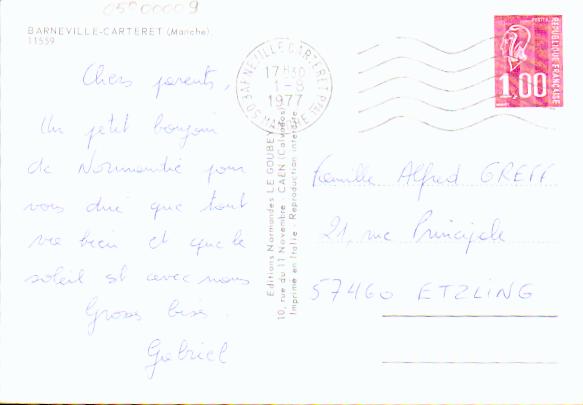 05900009
BARNEVILLE-CARTERET (Manche)
11559
Chers parents,
Un petit bonjour
de Normandie pour
vous dire que tout
va bien et que le
soleil est avec nous
Grosses bises.
Gabriel
BARNEVILLE CARTERET PPAL
17H30
1-8
1977
50 MANCHE
Editions Normandes LE GOUBEY
10, rue du 11 Novembre - CAEN (Calvados)
Imprimé en Italie - Reproduction interdite
POSTES
REPUBLIQUE FRANÇAISE
1,00
Famille Alfred GREFF
21, rue Principale
57460 ETZLING